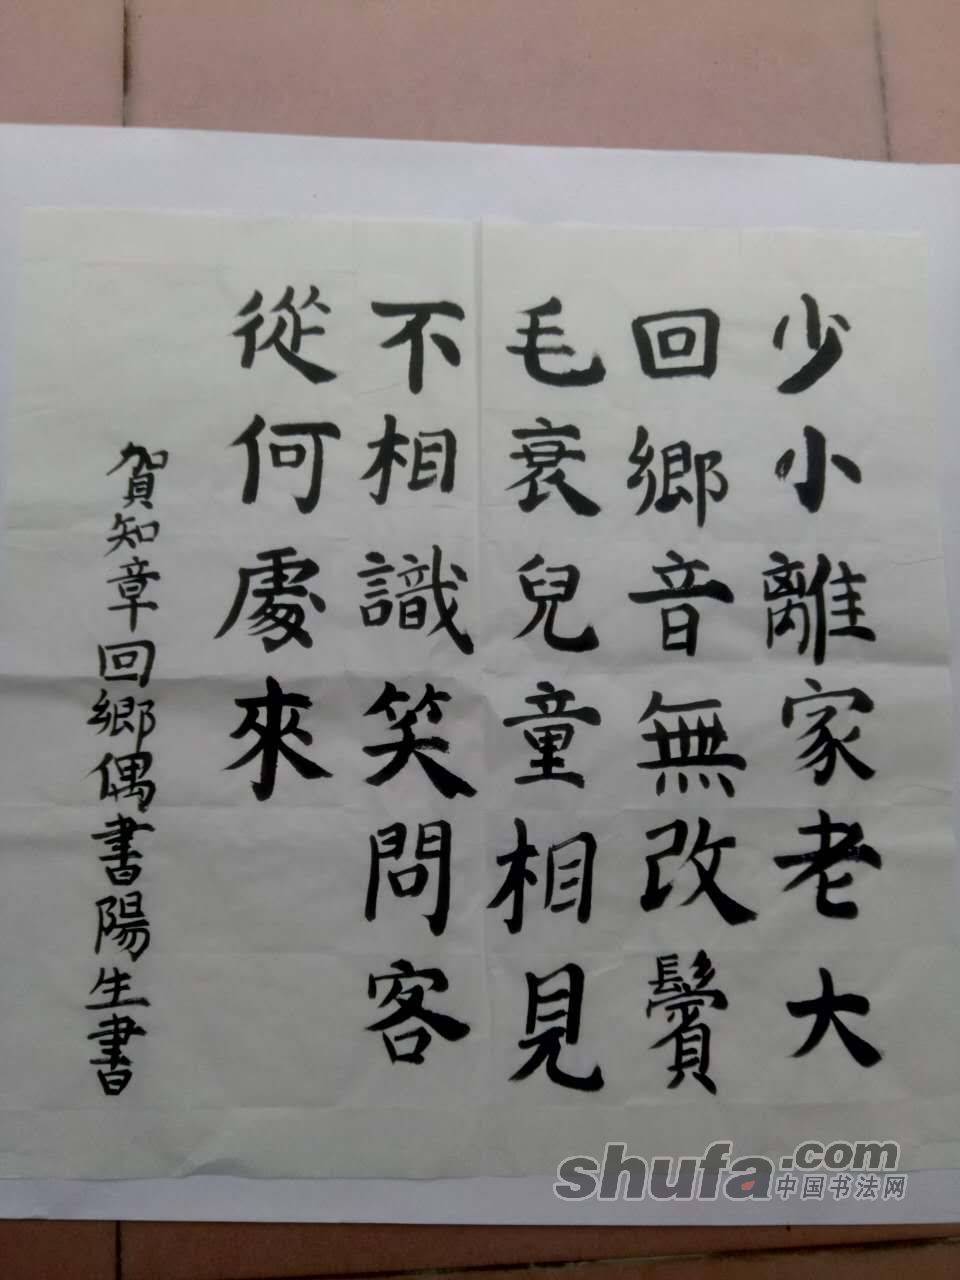 少小離家老大
回鄉音無改鬢
毛衰兒童相見
不相識笑問客
從何處來
賀知章回鄉偶書陽生書
shufa.com
中国书法网